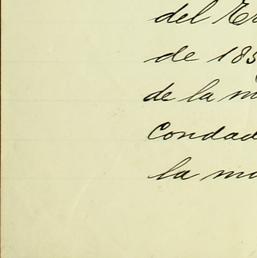 del
de 185
de la m
Condad
la ma